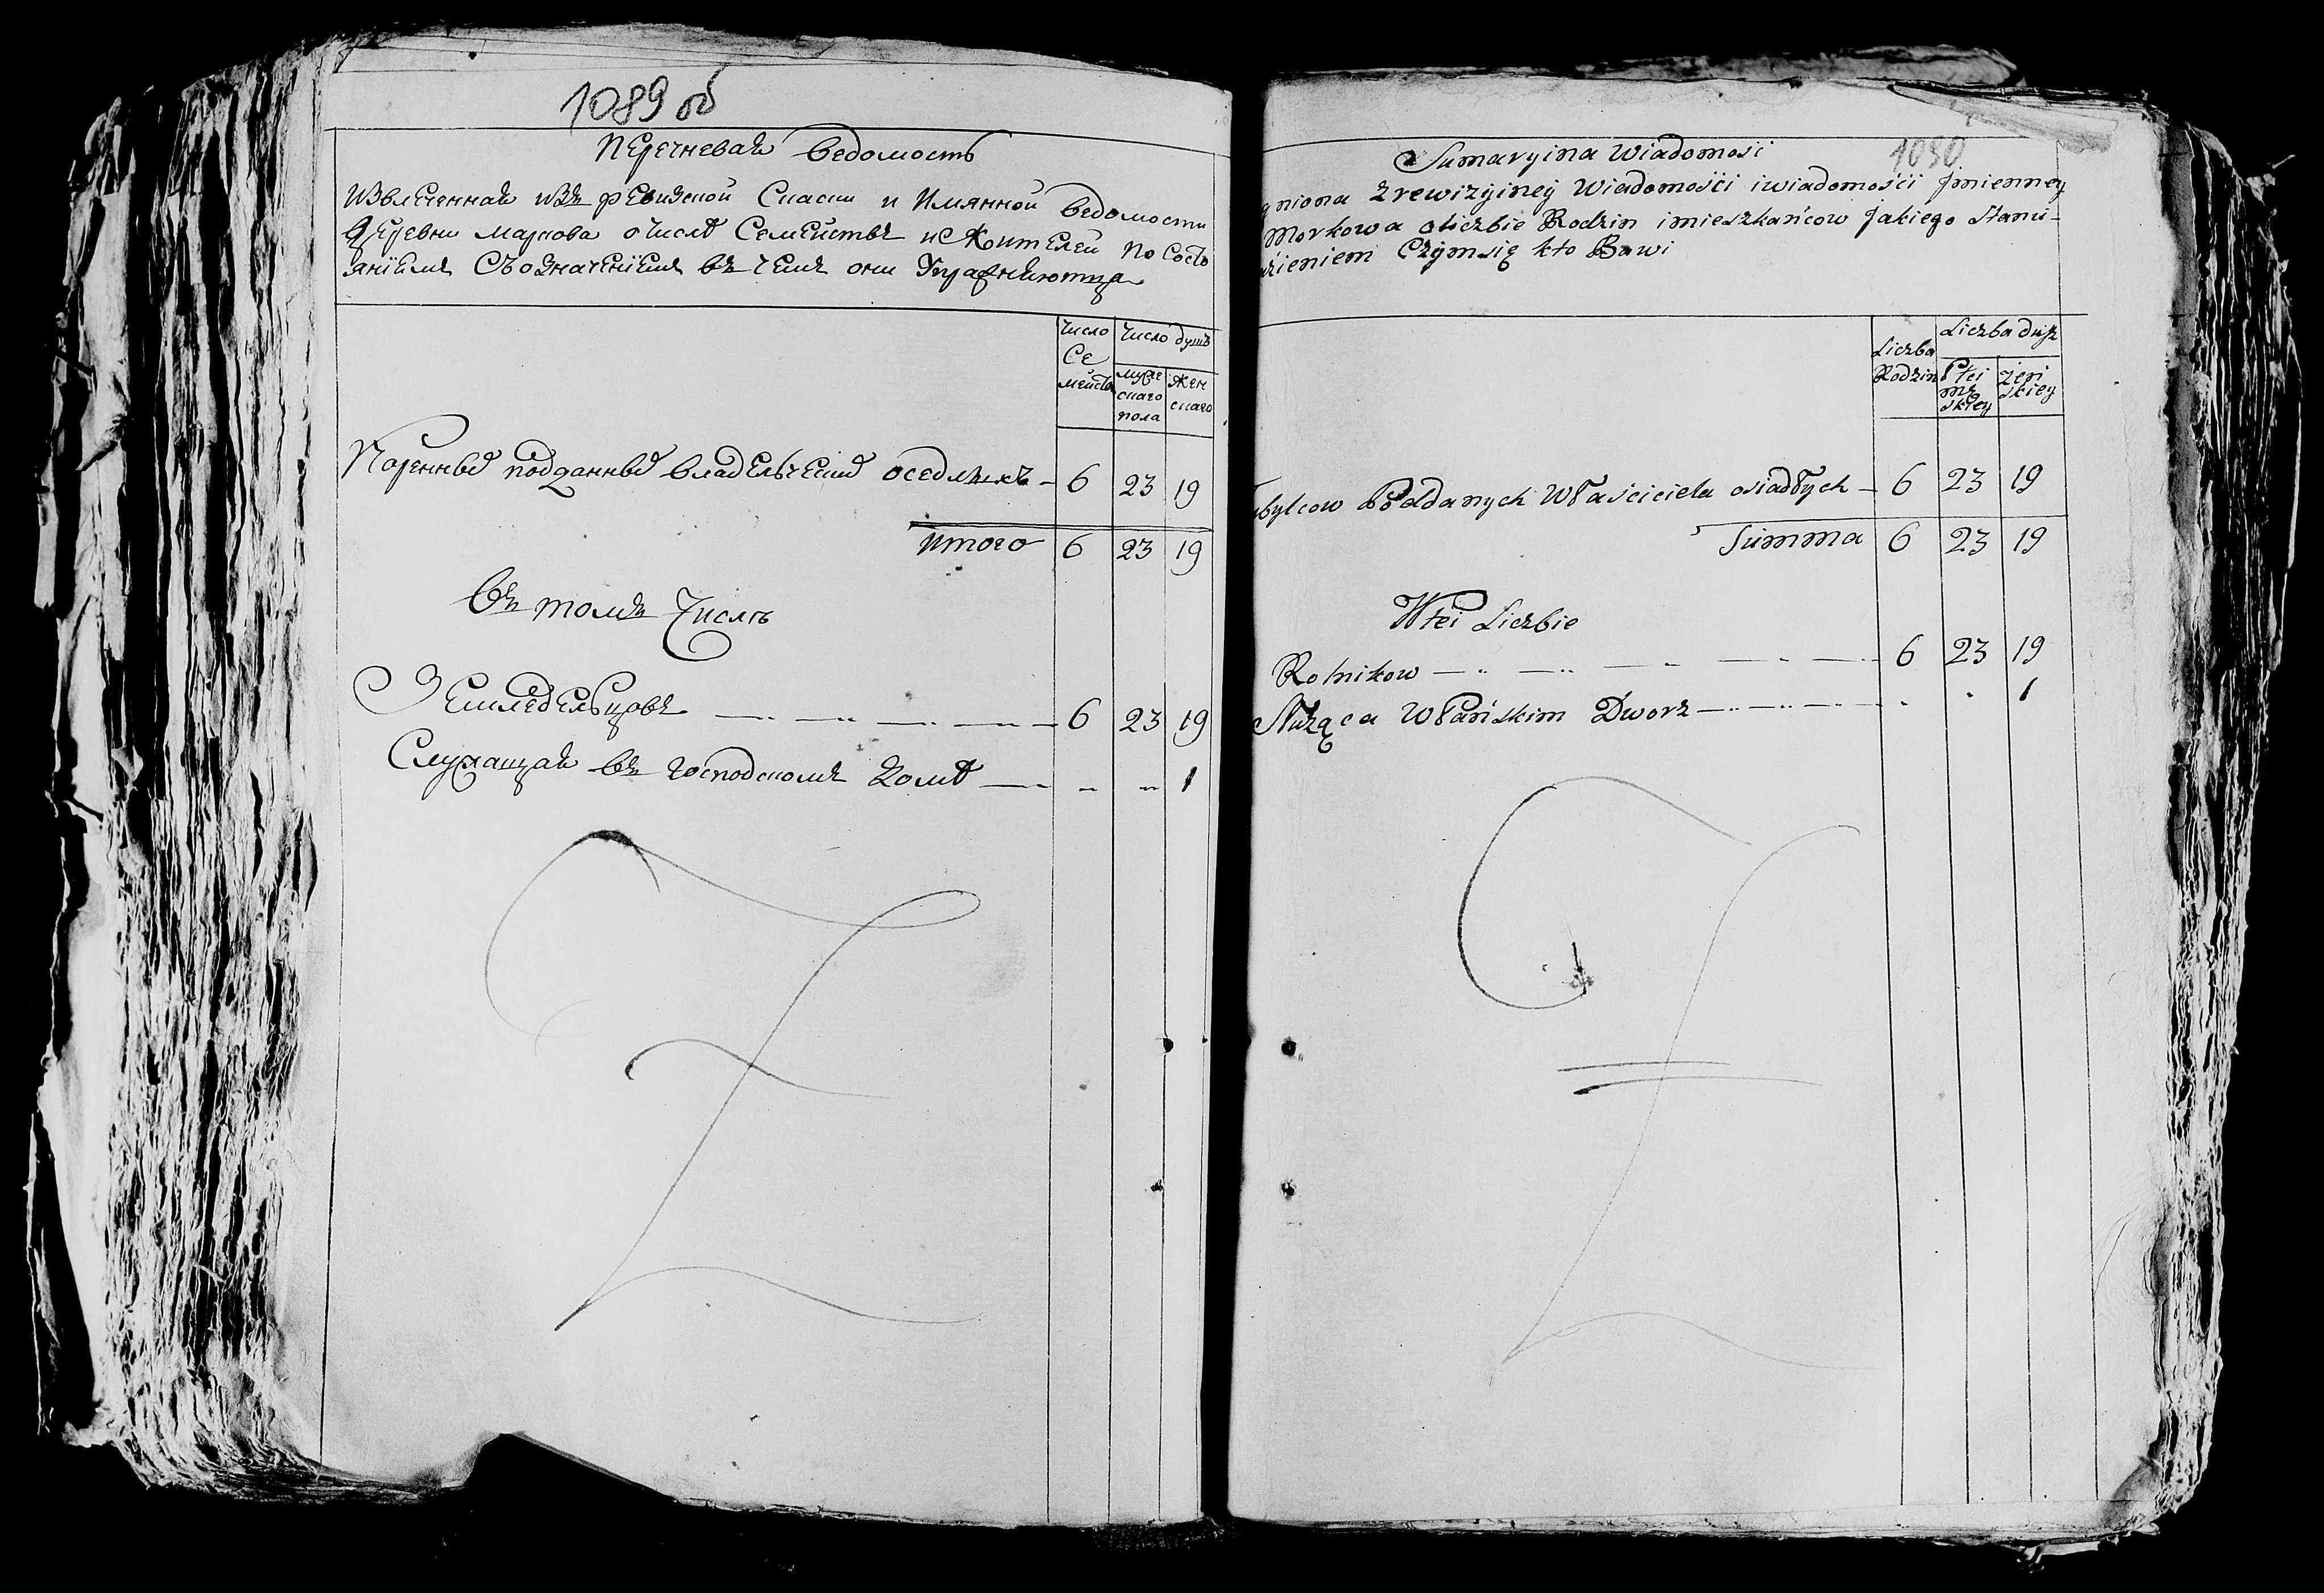 1089 об
Перечневая ведомость
Извлеченная изъ ревизской Скаски и Имянной ведомости
Деревни Маркова о числѣ Семействъ и Жителей по Состо
янїямъ Съ означенїемъ въ чемъ они Упражняютца
Число Се мейства
Число душъ
муже скаго пола
жен скаго
Коренныѣ подданныѣ владельческиѣ оседлыхъ - 6 23 19
итого 6 23 19
Въ томъ Числѣ
Земледельцовъ 6 23 19
Служащая въ господскомъ домѣ 1
1090
Sumaryina Wiadomośi
gniona z rewizyiney Wiadomośći i wiadomośći Jmienney
Morkowa o liczbie Rodzin i mieszkańcow Jakiego Stanu -
zieniem Czym się kto Bawi
Liczba Rodzin
Liczba dusz
Płei mę skiey
żeń skiey
ubylcow Poddanych Właściciela osiadłych - 6 23 19
Summa 6 23 19
W tei Liczbie
Rolnikow 6 23 19
Służąca w Pańskim Dworz 1